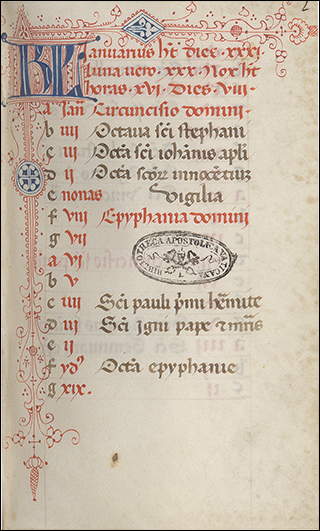 2
KL Ianuarius ht dies .xxxi.
Luna uero .xxx. Nox ht
horas .xvi. Dies .viii.
a Ian Circuncisio domini.
b iiii Octaua sci stephani
c iii Octa sci iohanis apli
d ii Octa scor innocetium
e nonas Vigilia
f viii Epyphania domini
g vii
BIBLIOTHECA APOSTOLICA VATICANA
a vi
b v
c iiii Sci pauli pimi hemite
d iii Sci igni pape & mris
e ii
f yds Octa epyphanie
g xix.